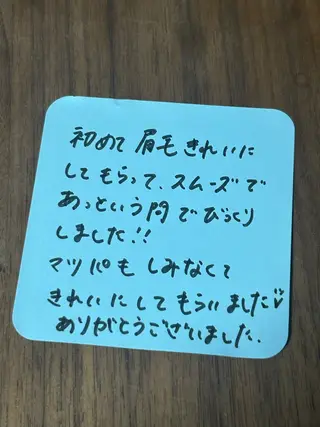 初めて眉毛きれいに
してもらって、スムーズで
あっという間でびっくり
しました!!
マツパもしみなくて
きれいにしてもらいました♡
ありがとうございました.